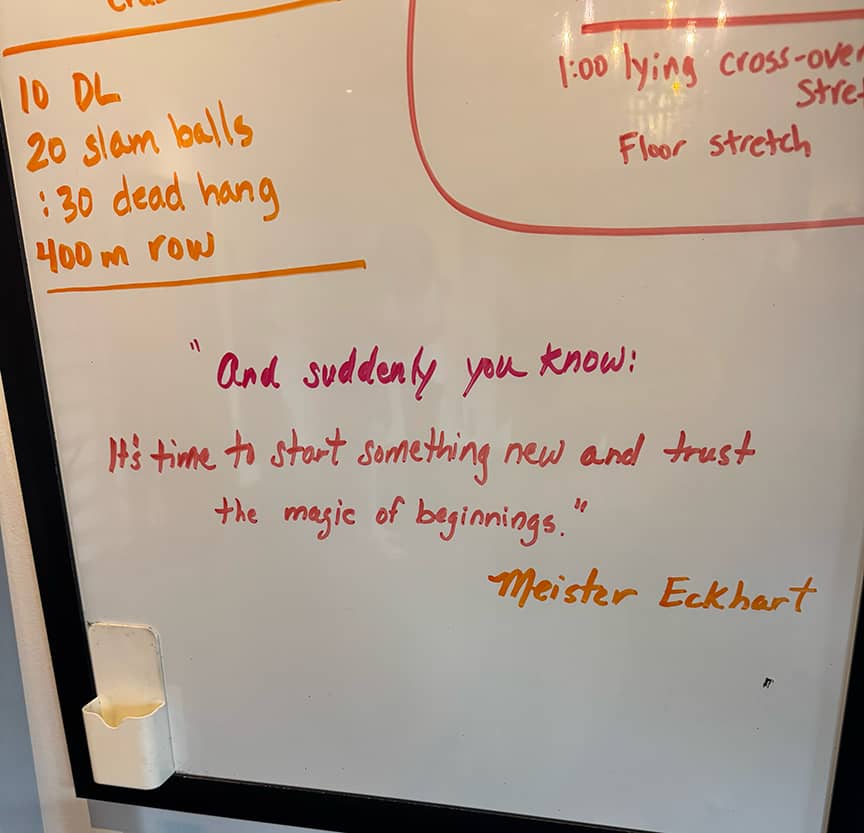 10 DL
20 slam balls
:30 dead hang
400 m row
1:00 lying cross-over
Floor stretch
"And suddenly you know:
It's time to start something new and trust
the magic of beginnings."
Meister Eckhart